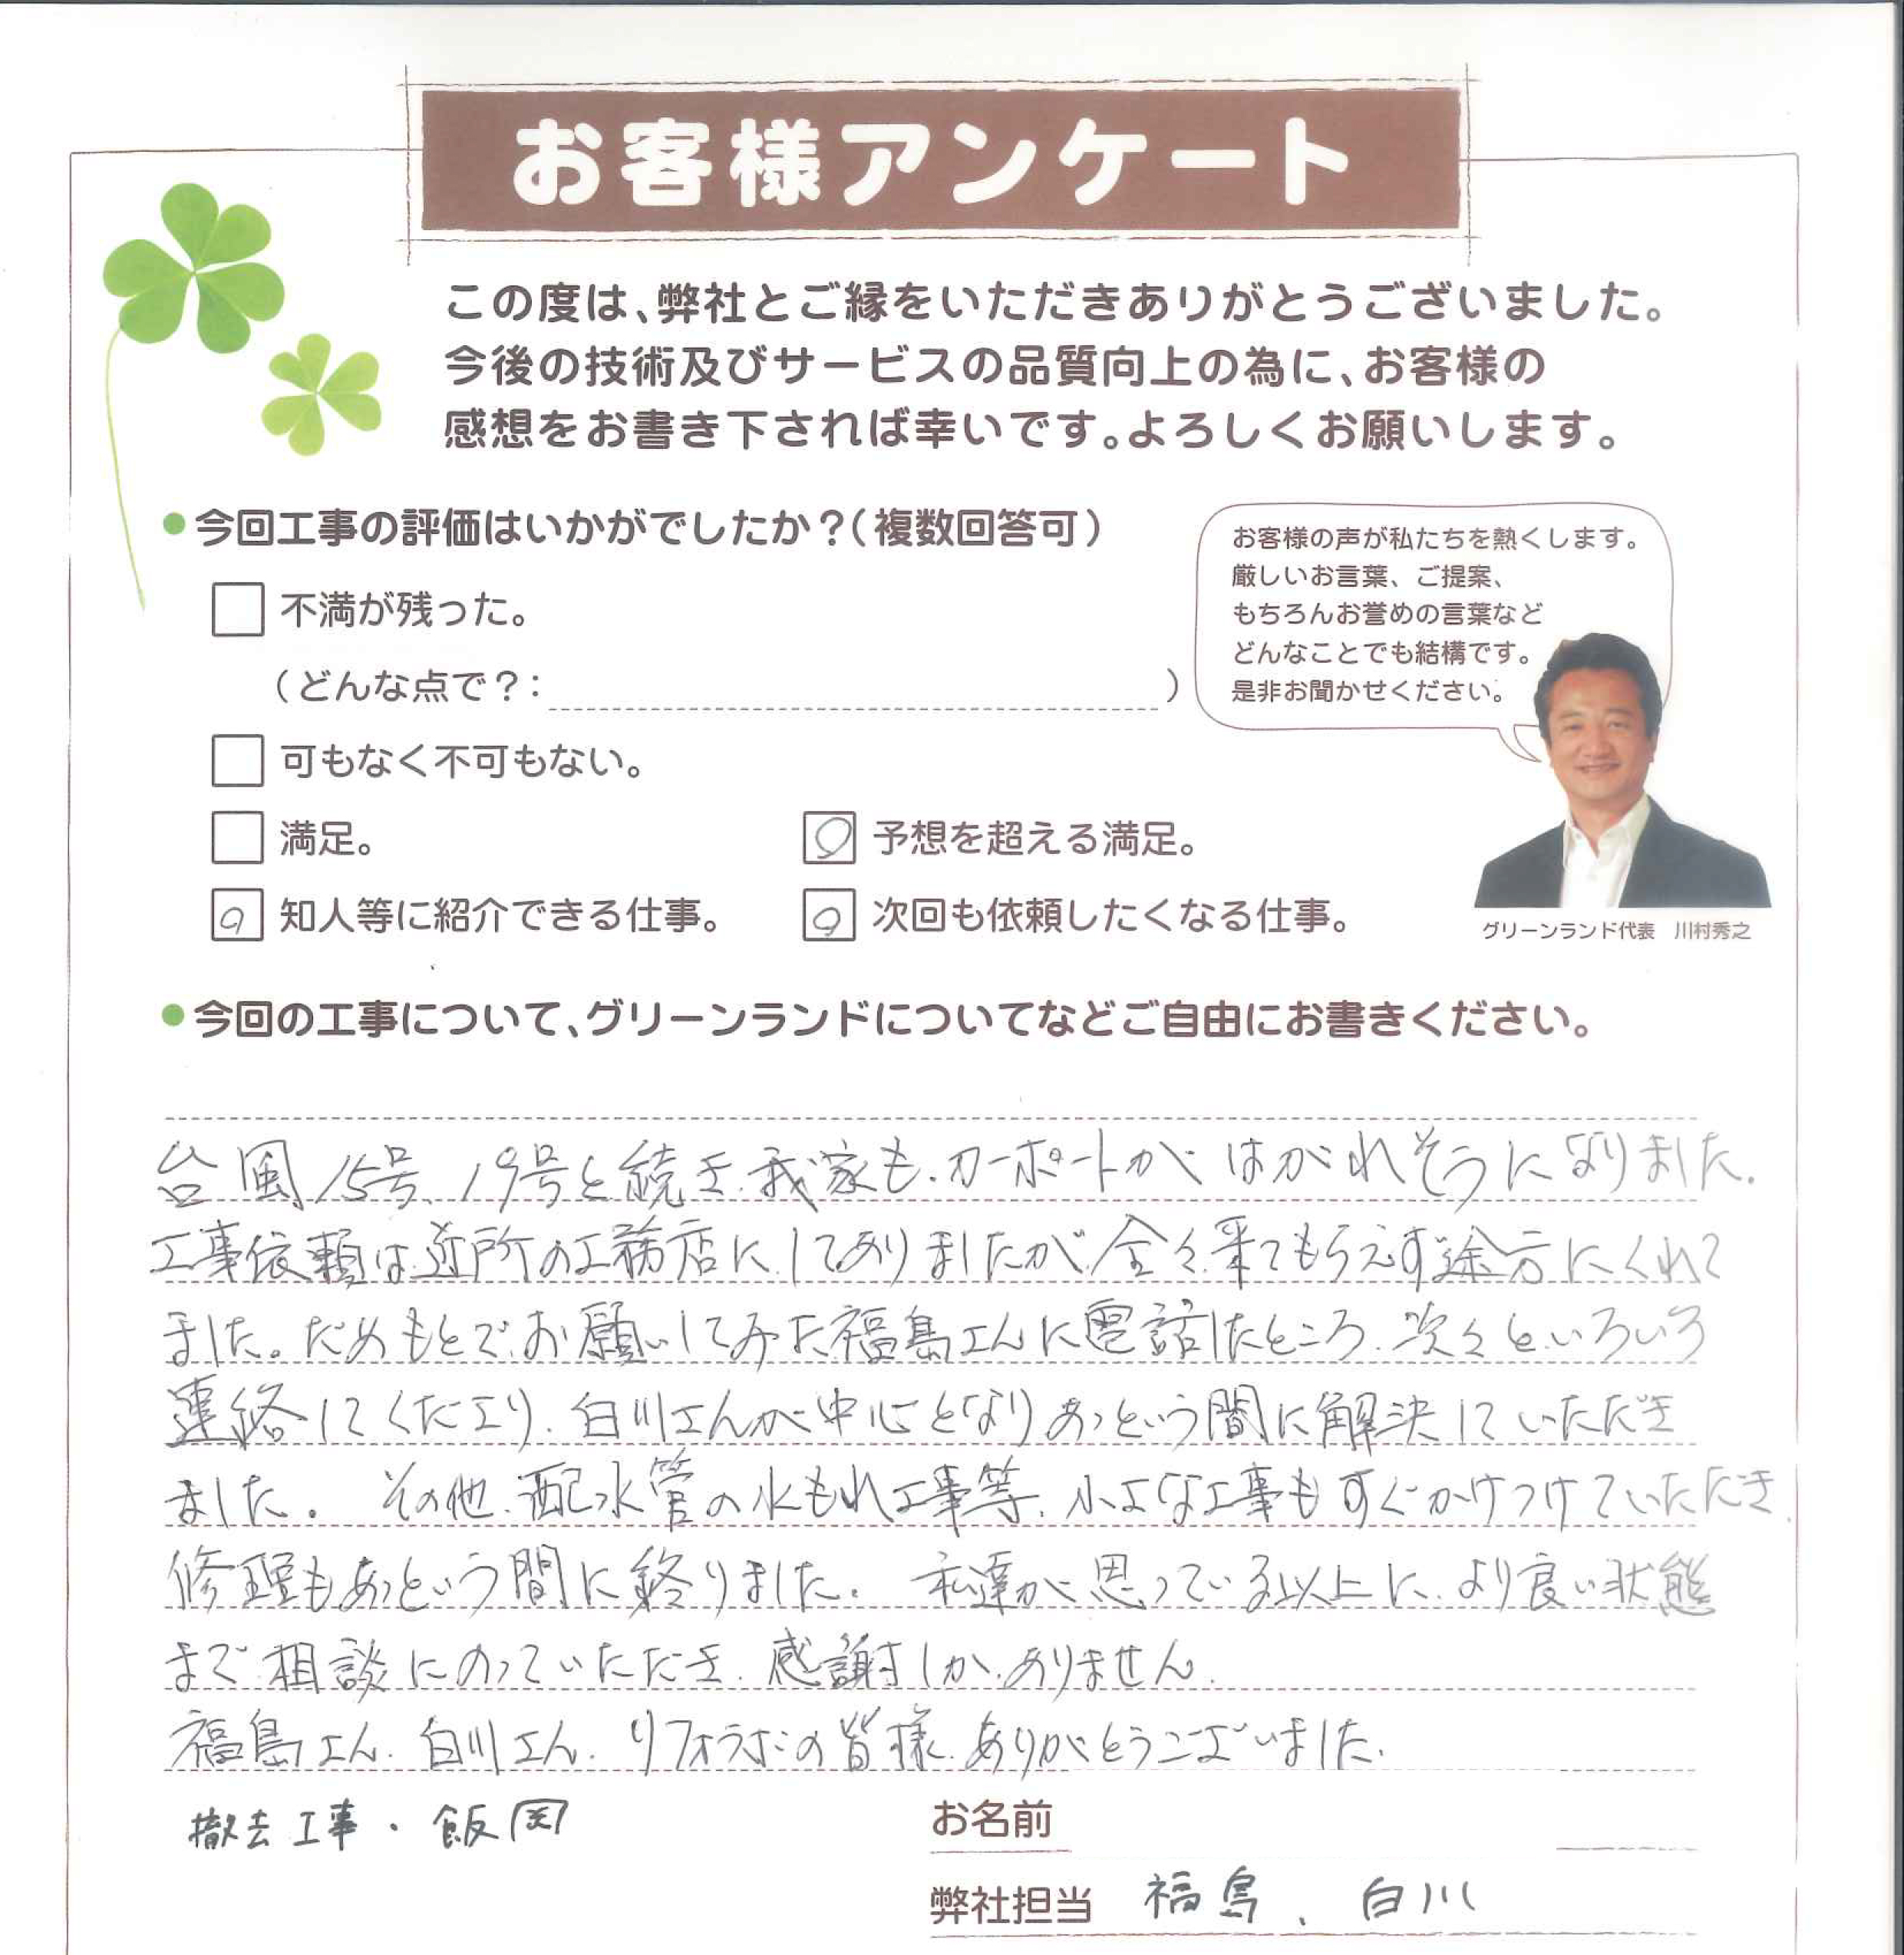 お客様アンケート
この度は、弊社とご縁をいただきありがとうございました。
今後の技術及びサービスの品質向上の為に、お客様の
感想をお書き下されば幸いです。よろしくお願いします。
●今回工事の評価はいかがでしたか?(複数回答可)
不満が残った。
(どんな点で?: )
可もなく不可もない。
満足。
予想を超える満足。
知人等に紹介できる仕事。
次回も依頼したくなる仕事。
お客様の声が私たちを熱くします。
厳しいお言葉、ご提案、
もちろんお誉めの言葉など
どんなことでも結構です。
是非お聞かせください。
グリーンランド代表 川村秀之
●今回の工事について、グリーンランドについてなどご自由にお書きください。
台風15号、19号と続き、我家も、カーポートがはがれそうになりました。
工事依頼は近所の工務店にしてありましたが、全々来てもらえず途方にくれて
ました。だめもとでお願いしてみた福島さんに電話したところ、次々といろいろ
連絡してくださり、白川さんが中心となりあっという間に解決していただき
ました。 その他、配水管の水もれ工事等、小さな工事もすぐかけつけていただき、
修理もあっという間に終りました。 私達が思っている以上に、より良い状態
まで相談にのっていただき、感謝しかありません。
福島さん、白川さん、リフォラボの皆様、ありがとうございました。
撤去工事・飯岡
お名前
弊社担当 福島、白川